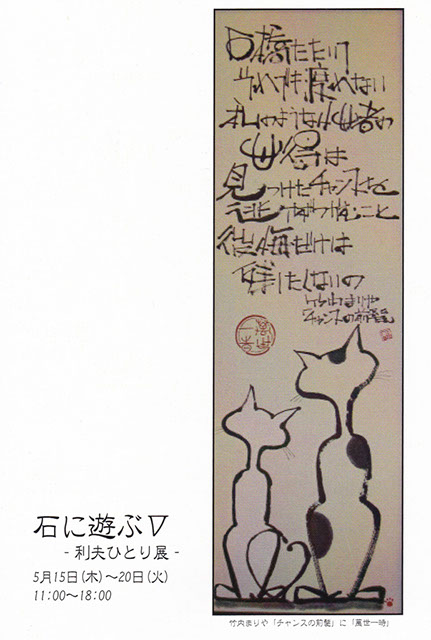 石橋たたいて
それでも渡れない
私のような小心者の
心得は
見つけたチャンスを
つかむこと
後悔だけは
残したくないの
竹内まりや
チャンスの前髪
石に遊ぶⅤ
- 利夫ひとり展 -
5月15日(木)～20日(火)
11:00～18:00
竹内まりや「チャンスの前髪」に「萬世一時」